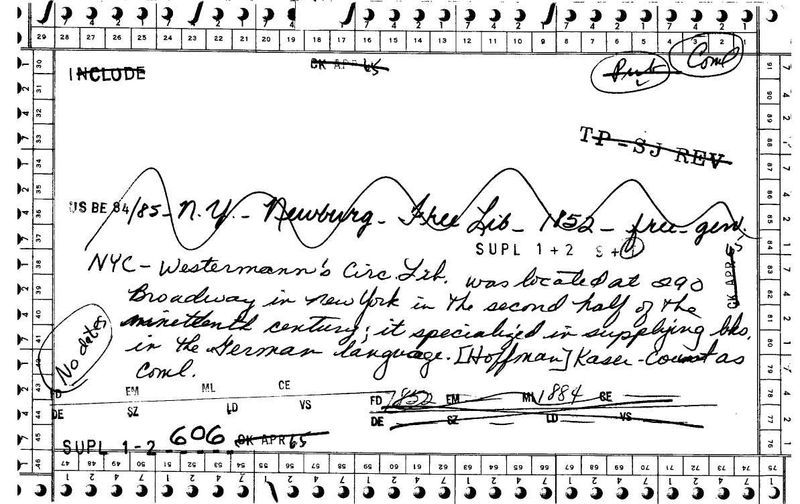 29 28 27 26 25 24 23 22 21 20 19 18 17 16 15 14 13 12 11 10 9 8 7 6 5 4 3 2 1
INCLUDE
CK APR 65
Pub
Coml
TP-SJ REV
US BE 84/85- N.Y.- Newburg- Free Lib- 1852- free-gen.
SUPL 1+2 S+
CK APR 65
NYC- Westermann's Circ Lib. was located at 290
Broadway in New York in the second half of the
nineteenth century; it specialized in supplying bks.
in the German language. [Hoffman] Kaser- Count as
coml.
No dates
FD EM ML CE
DE SZ LD VS
FD 1852 EM ML 1884 CE
DE SZ LD VS
SUPL 1-2 606 CK APR 65
30 31 32 33 34 35 36 37 38 39 40 41 42 43 44 45 46
47 48 49 50 51 52 53 54 55 56 57 58 59 60 61 62 63 64 65 66 67 68 69 70 71 72 73 74 75